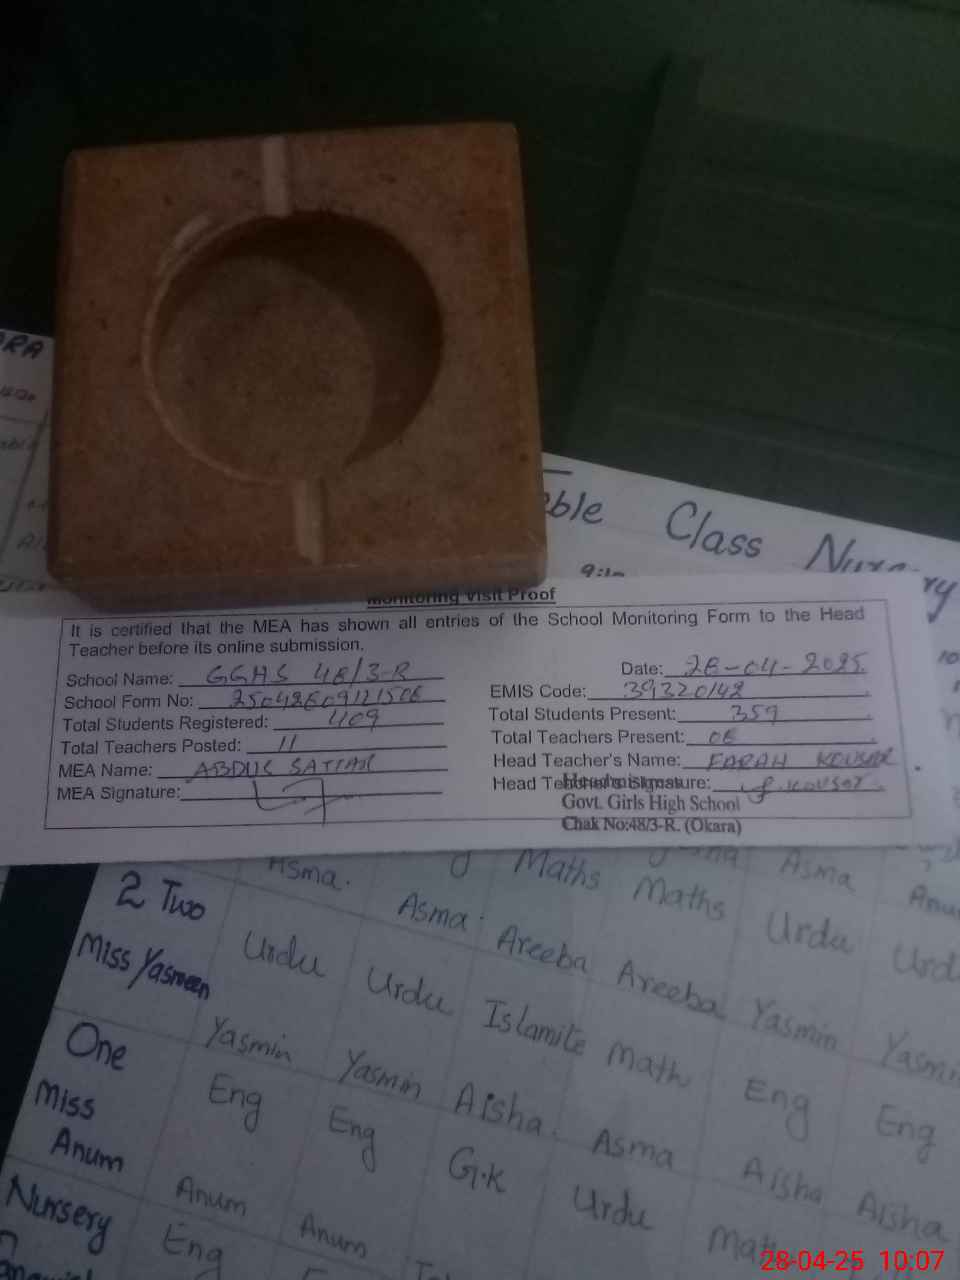 RA
ble Class Nursery
Monitoring Visit Proof
It is certified that the MEA has shown all entries of the School Monitoring Form to the Head
Teacher before its online submission.
School Name: GGHS 48/3-R Date: 28-04-2025
School Form No: EMIS Code: 39320142
Total Students Registered: 409 Total Students Present: 359
Total Teachers Posted: 11 Total Teachers Present: 08
MEA Name: ABDUS SATTAR Head Teacher's Name: FARAH KOUSAR
MEA Signature: Head Teacher's Signature: f. kousar
Headmistress
Govt. Girls High School
Chak No:48/3-R. (Okara)
Asma. Maths Maths Asma Anu
2 Two Asma. Areeba Areeba Urdu Urd
Miss Yasmeen Urdu Urdu Islamite Math Yasmin Yasmi
One Yasmin Yasmin Aisha. Asma Eng Eng
Miss Anum Eng Eng G.K Urdu Aisha Aisha
Nursery Anum Anum Mat
Eng
28-04-25 10:07